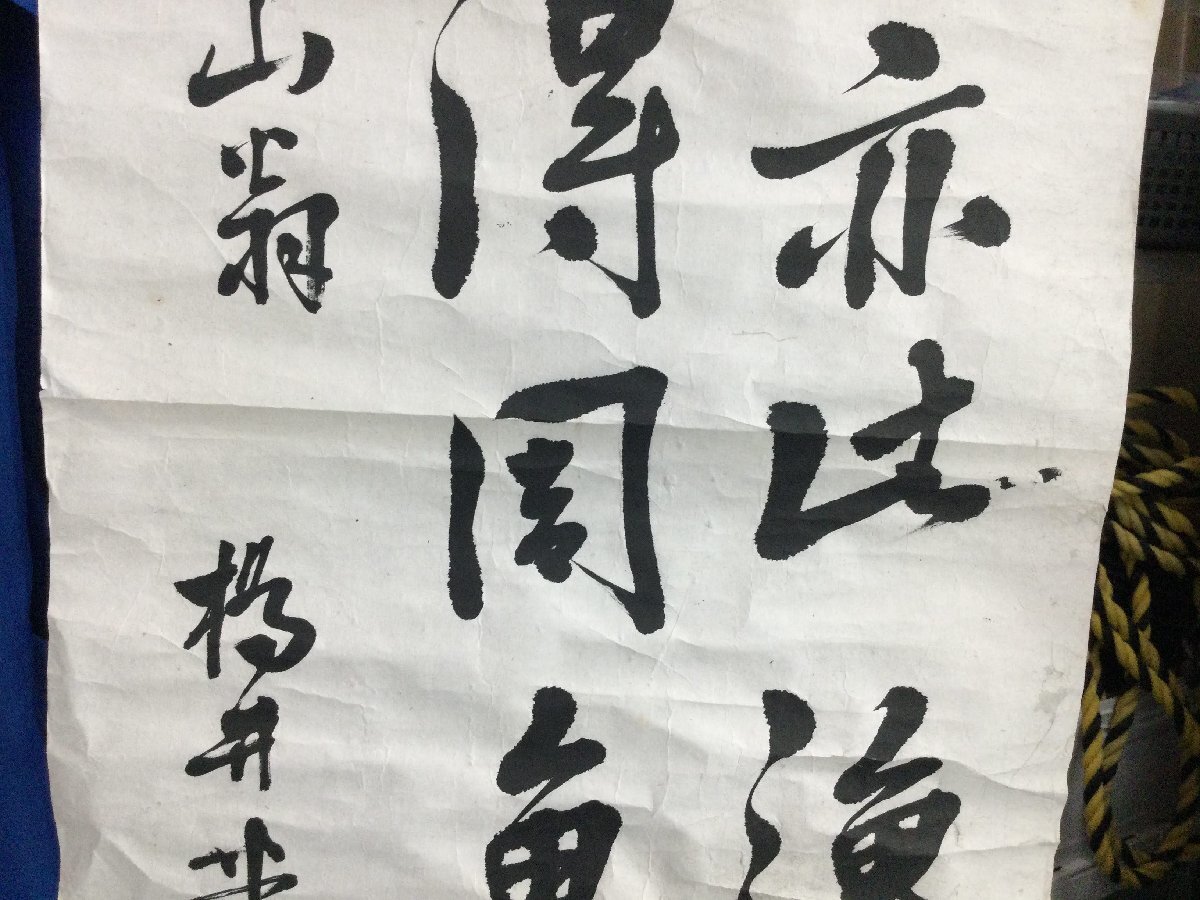 亦此漁
得周魚
山翁 楊井